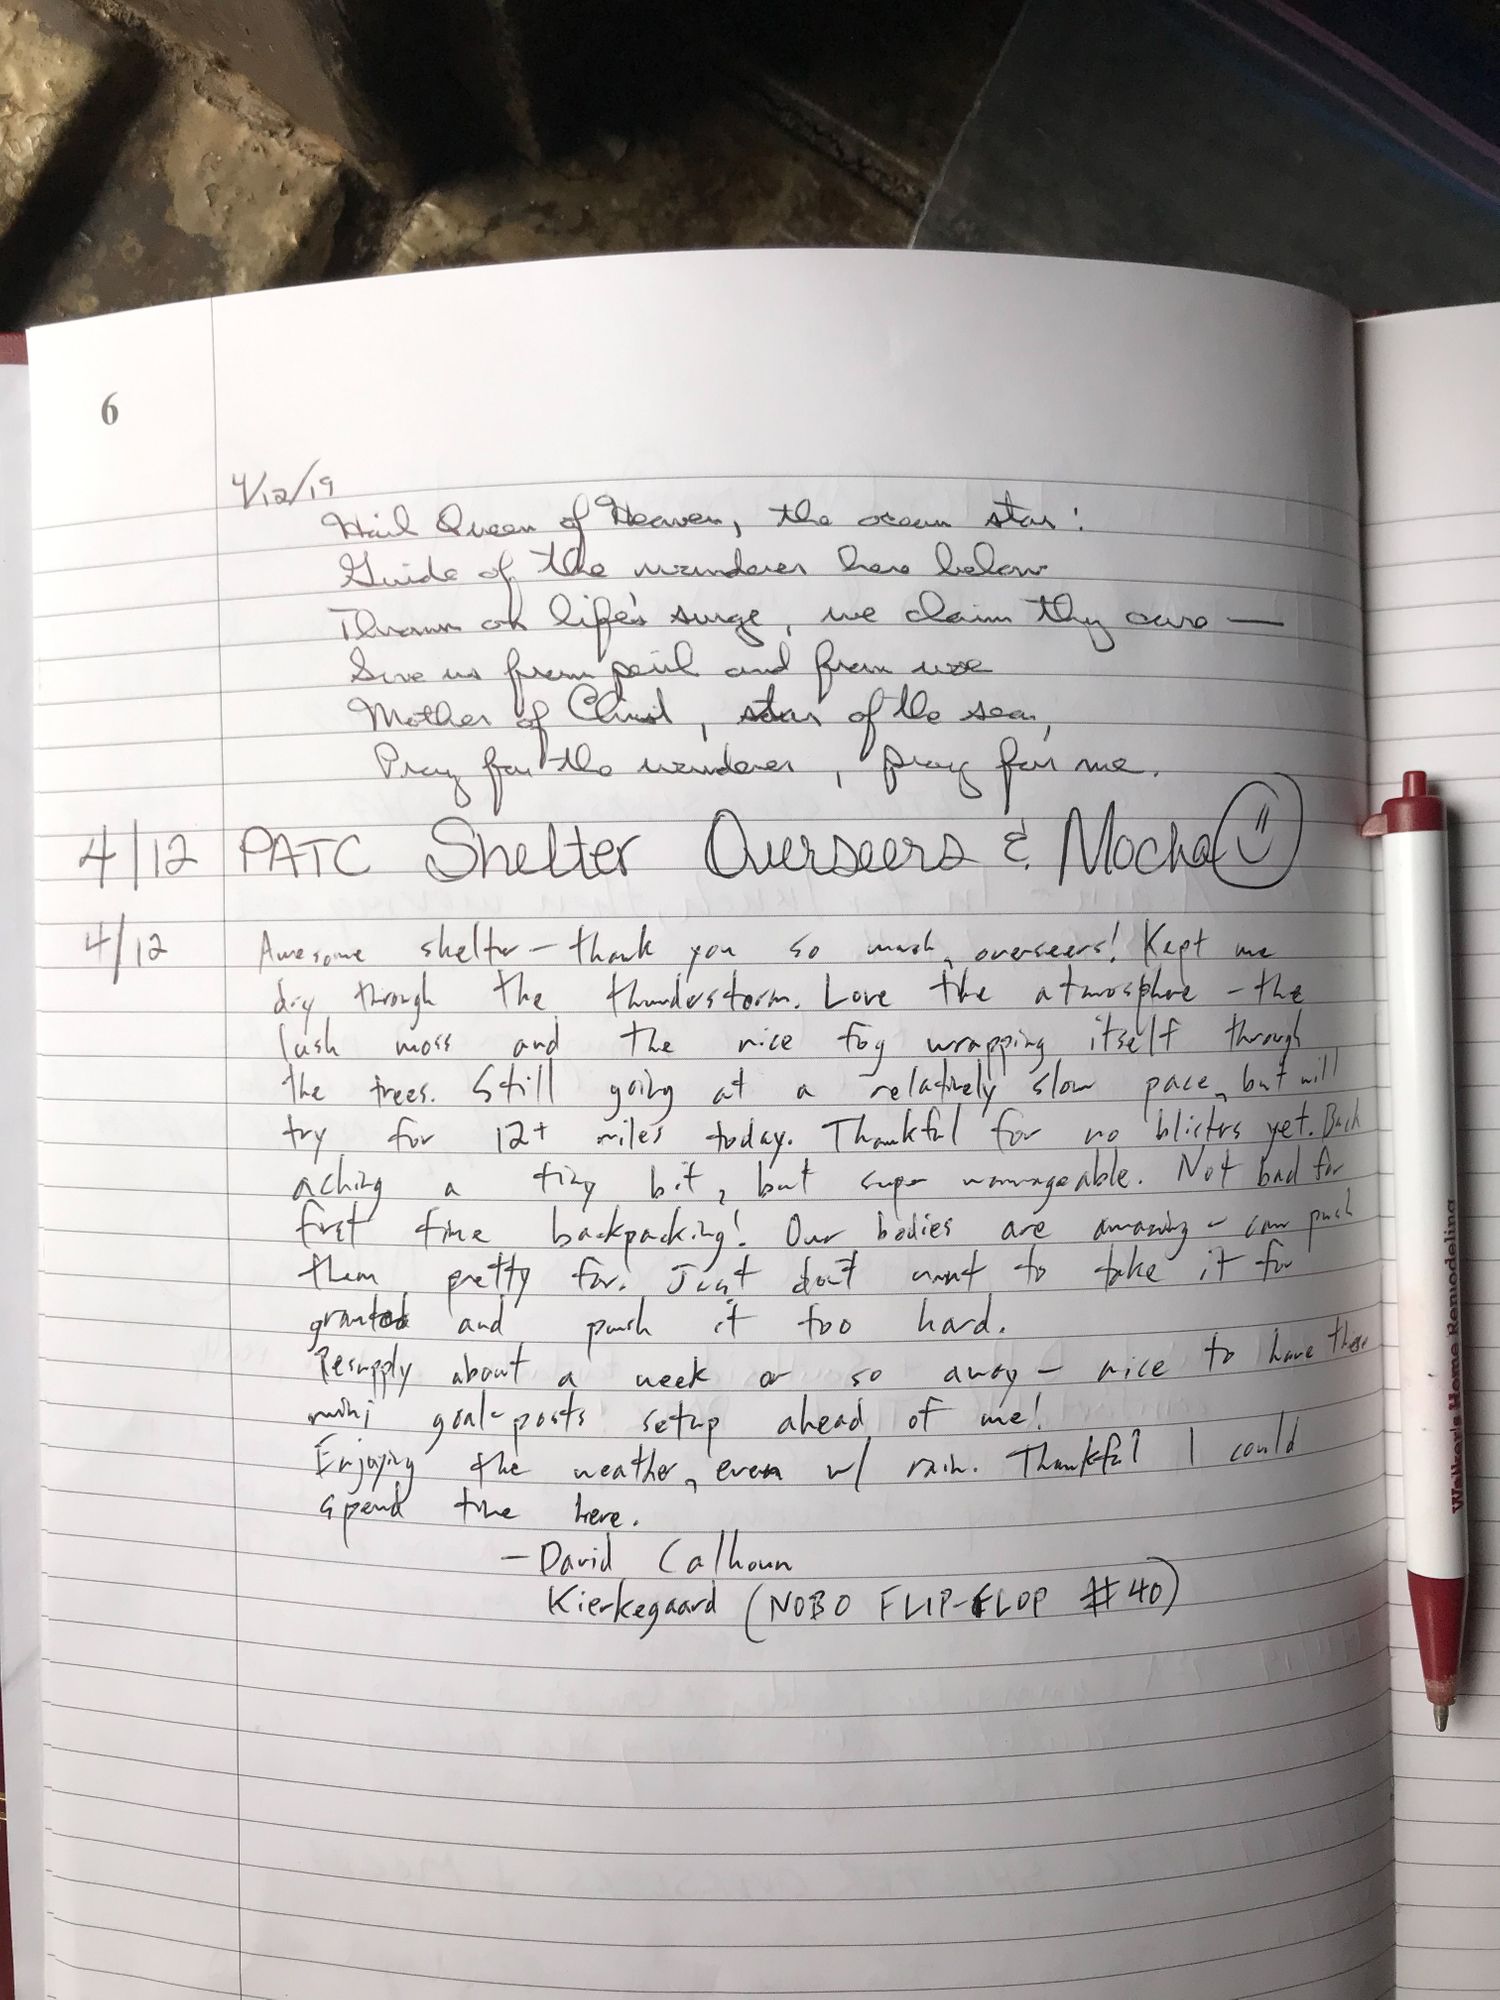 6
4/12/19
Hail Queen of Heaven, the ocean star!
Guide of the wanderer here below
Thrown on life's surge, we claim thy care —
Save us from peril and from woe
Mother of Christ, star of the sea,
Pray for the wanderer, pray for me.
4/12 PATC Shelter Overseers & Mocha
4/12 Awesome shelter — thank you so much, overseers! Kept me
dry through the thunderstorm. Love the atmosphere - the
lush moss and the nice fog wrapping itself through
the trees. Still going at a relatively slow pace, but will
try for 12+ miles today. Thankful for no blisters yet. Back
aching a tiny bit, but super manageable. Not bad for
first time backpacking! Our bodies are amazing - can push
them pretty far. Just don't want to take it for
granted and push it too hard.
Resupply about a week or so away - nice to have these
mini goal-posts setup ahead of me!
Enjoying the weather, even w/ rain. Thankful I could
spend time here.
— David Calhoun
Kierkegaard (NOBO FLIP-FLOP #40)
Walker's Home Remodeling